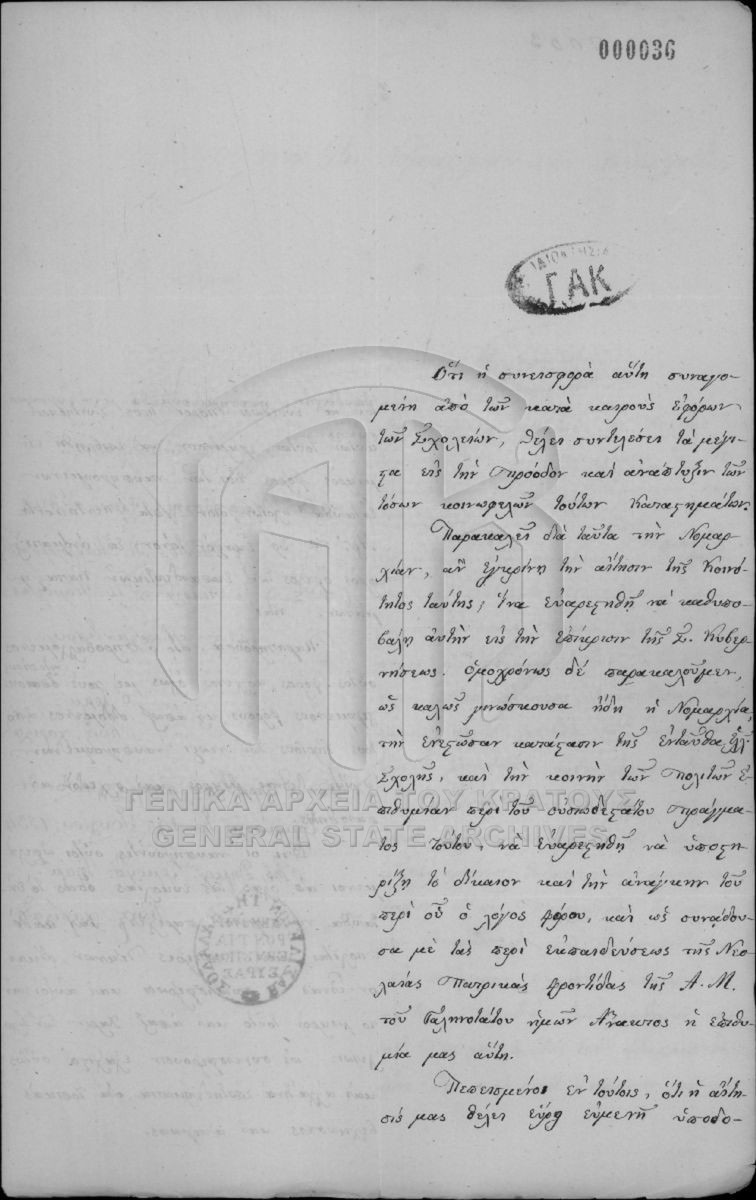 000036
ΙΔΙΟΚΤΗΣΙΑ
ΓΑΚ
Ὅτι ἡ συνεισφορὰ αὕτη συναγο-
μένη ἀπὸ τῶν κατὰ καιροὺς Ἐφόρων
τῶν Σχολείων, θέλει συντελέσει τὰ μέγι-
στα εἰς τὴν πρόοδον καὶ ἀνάπτυξιν τῶν
τόσων κοινωφελῶν τούτων καταστημάτων.
Παρακαλεῖ διὰ ταῦτα τὴν Νομαρ-
χίαν, ἂν ἐγκρίνῃ τὴν αἴτησιν τῆς Κοινό-
τητος ταύτης, ἵνα εὐαρεστηθῇ νὰ καθυπο-
βάλῃ αὐτὴν εἰς τὴν ἐπίκρισιν τῆς Σ. Κυβερ-
νήσεως. ὁμοχρόνως δὲ παρακαλοῦμεν,
ὡς καλῶς γινώσκουσα ἤδη ἡ Νομαρχία,
τὴν ἐνεστῶσαν κατάστασιν τῆς ἐνταῦθα Ἑλλ.
Σχολῆς, καὶ τὴν κοινὴν τῶν Πολιτῶν ἐ-
πιθυμίαν περὶ τοῦ οὐσιωδεστάτου πράγμα-
τος τούτου, νὰ εὐαρεστηθῇ νὰ ὑποστη-
ρίξῃ τὸ δίκαιον καὶ τὴν ἀνάγκην τοῦ
περὶ οὗ ὁ λόγος φόρου, καὶ ὡς συνᾴδου-
σα μὲ τὰς περὶ ἐκπαιδεύσεως τῆς Νεο-
λαίας πατρικὰς φροντίδας τῆς Α. Μ.
τοῦ Γαληνοτάτου ἡμῶν Ἄνακτος ἡ ἐπιθυ-
μία μας αὕτη.
Πεπεισμένοι ἐν τούτοις, ὅτι ἡ αἴτη-
σίς μας θέλει εὕρῃ εὐμενῆ ὑποδο-
ΓΕΝΙΚΑ ΑΡΧΕΙΑ ΤΟΥ ΚΡΑΤΟΥΣ
GENERAL STATE ARCHIVES